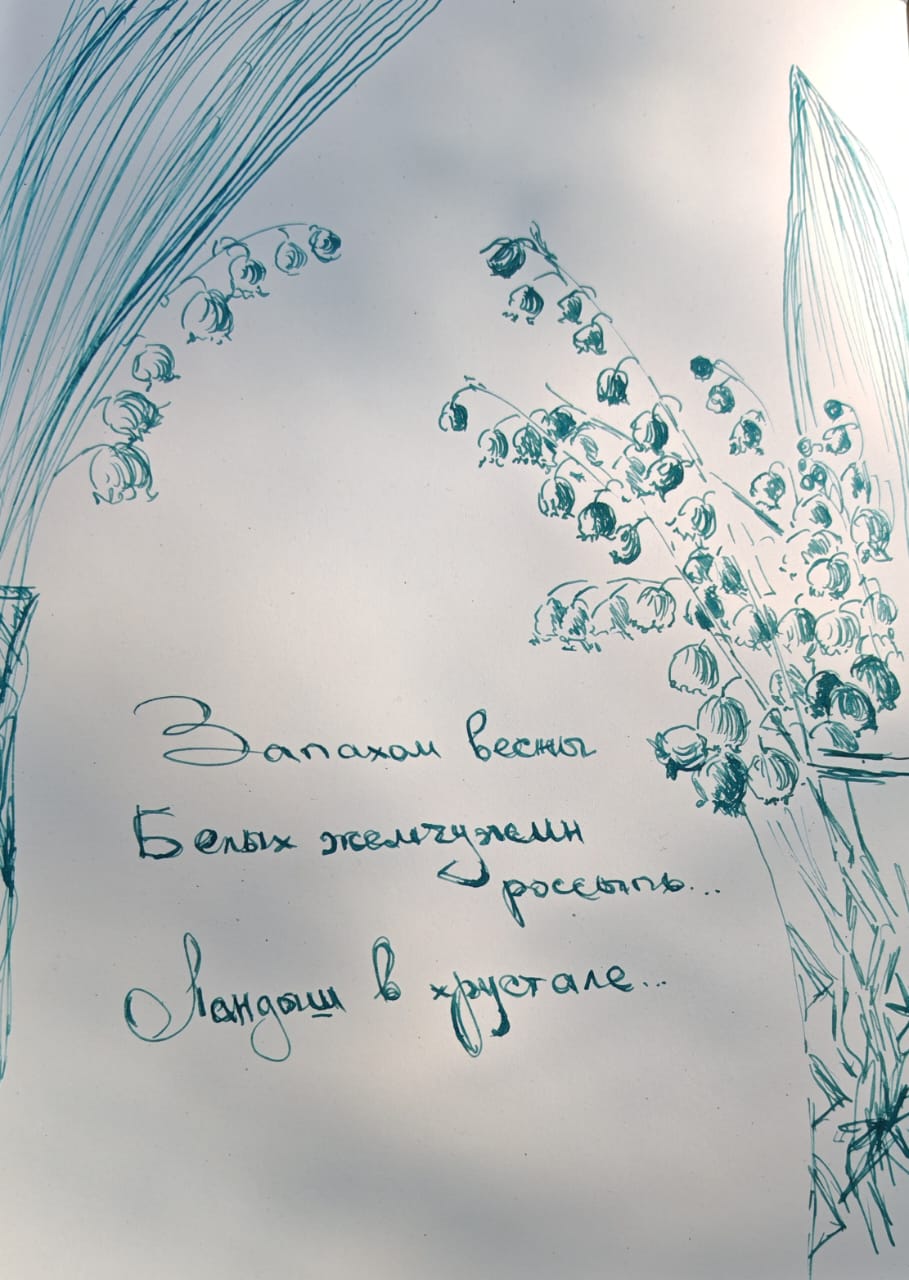 Запахом весны
Белых жемчужин
россыпь...
Ландыш в хрустале...